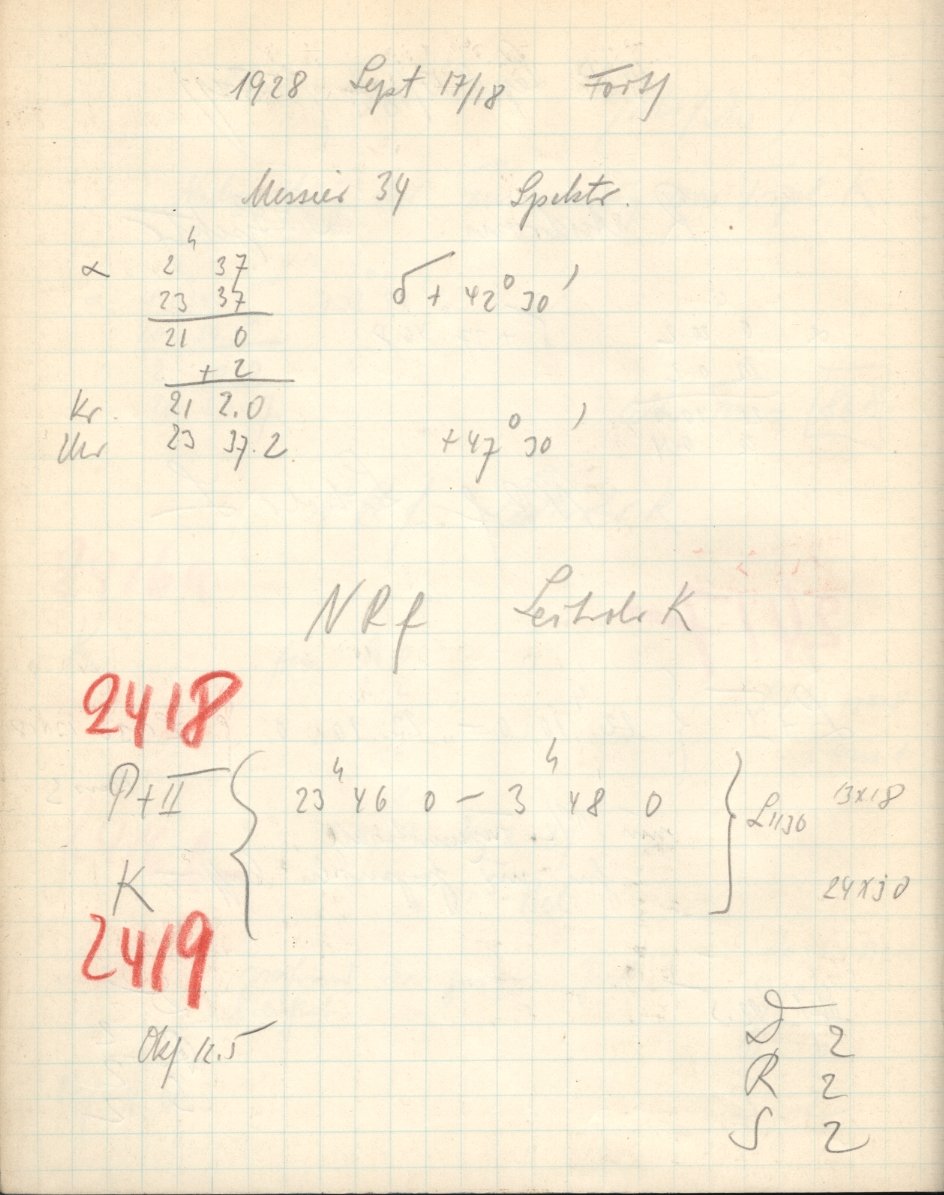 1928 Sept 17/18 Forts
Messier 34 Spektr.
α 2ʰ 37 δ + 42° 30'
23 37
21 0
+ 2
Kr. 21 2.0
Uhr 23 37.2 + 47° 30'
NRf K
2418
P+II { 23ʰ 46 0 – 3ʰ 48 0 } L1136 13x18
K 24x30
2419
Obj 12.5
D 2
R 2
S 2